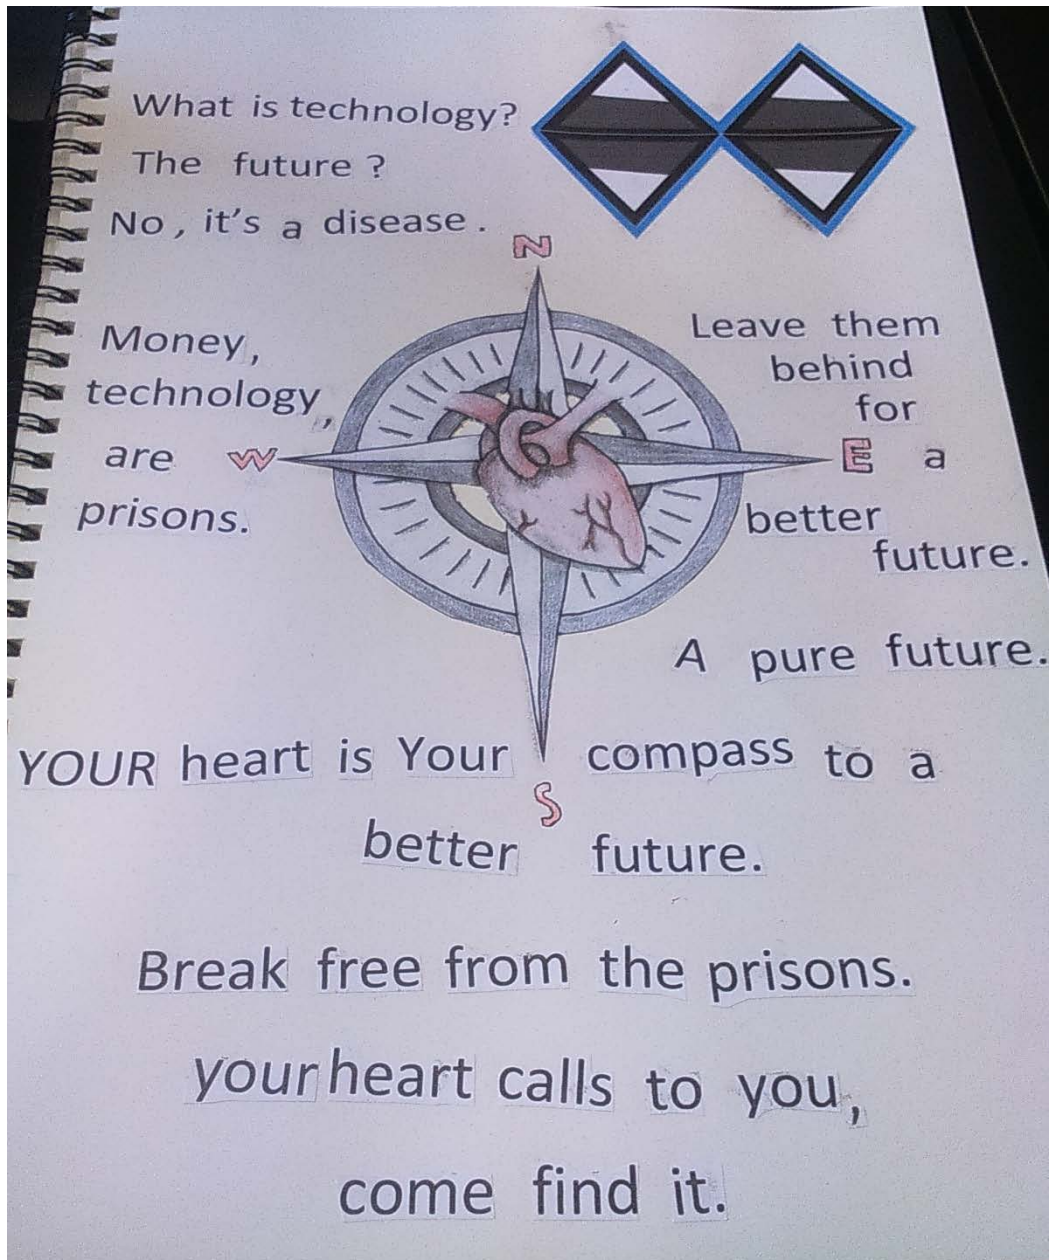 What is technology?
The future ?
No, it's a disease.
N
Money,
technology,
are
prisons.
W
Leave them
behind
for
E a
better
future.
A pure future.
YOUR heart is Your compass to a
S
better future.
Break free from the prisons.
your heart calls to you,
come find it.